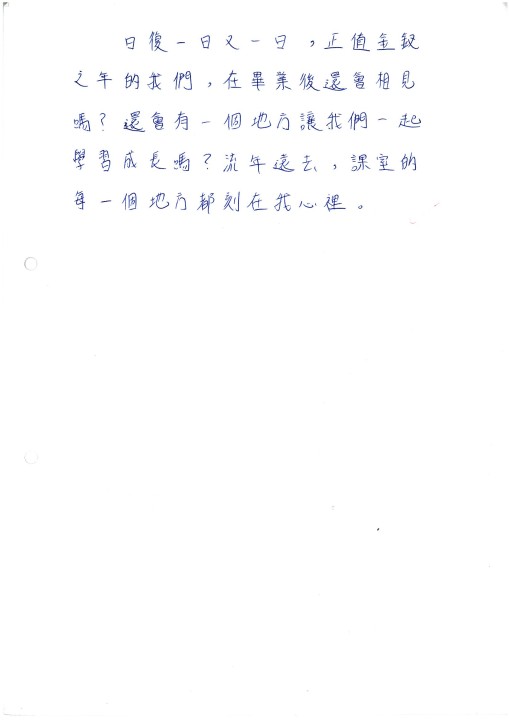 日復一日又一日,正值金釵
之年的我們,在畢業後還會相見
嗎?還會有一個地方讓我們一起
學習成長嗎?流年遠去,課室的
每一個地方都刻在我心裡。